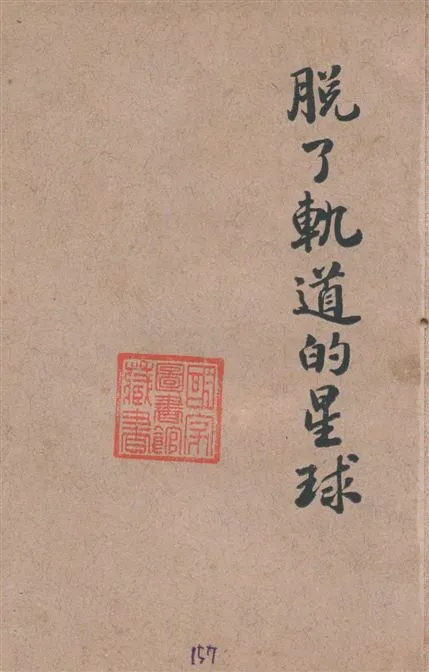 脫了軌道的星球
國家
圖書館
藏書
157